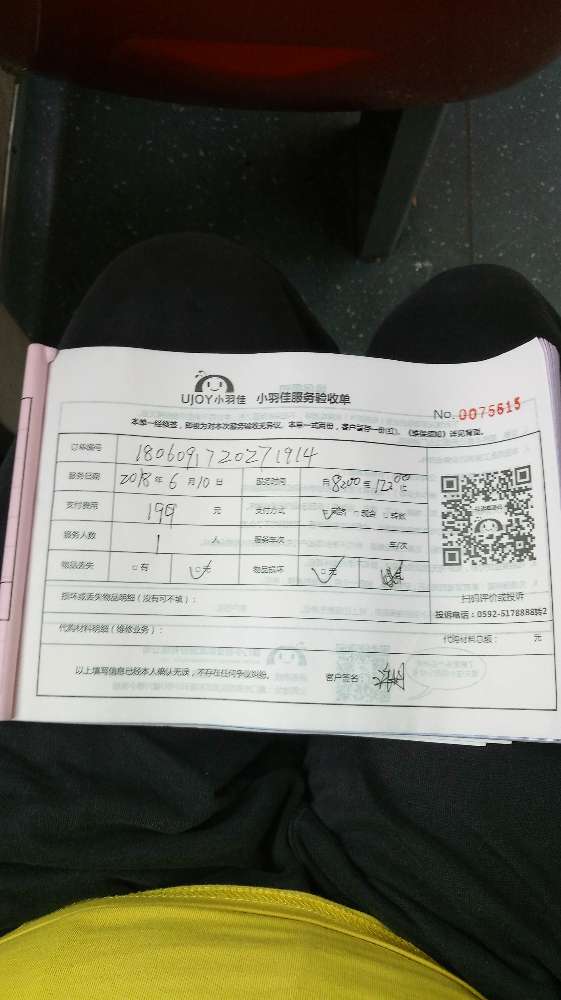 UJOY小羽佳 小羽佳服务验收单
No. 0075615
本单一经签, 即视为对本次服务验收无异议。本单一式两份, 客户留存一份(红)。《维保须知》详见背面。
订单编号 1806091720271914
服务日期 2018年6月10日 服务时间
支付费用 199 元 支付方式 现金 转账
服务人数 1 人 服务车次 车/次
物品丢失 有 无 物品损坏 无
扫码评价或投诉
损坏或丢失物品明细(没有可不填):
投诉电话:0592-5178888转2
代购材料明细(维修业务): 代购材料总额: 元
以上填写信息已经本人确认无误, 不存在任何争议纠纷。 客户签名: